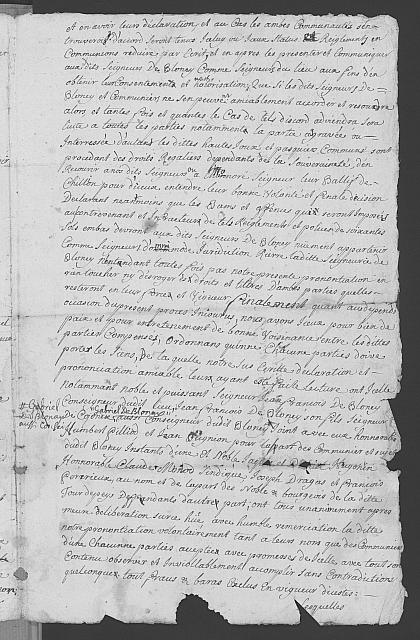 et en avoir leurs declaration et au cas les ambes Communautés s'en
trouveront d'acord seront tenus Iceluy ou Iceux Statuts et Reiglements en
Communion reduire par Ecrit et en apres les presenter et Communiquer
aux dits Seigneurs De Bloney Comme Seigneurs du lieu aux fins d'en
obtenir leur Consentement et notorisation, Que si les dits Seigneurs De
Bloney et Communier ne s'en peuvent amiablement accorder et resoudre
alors et tantes fois et quantes le Cas de tels discord adviendra sera
a toutes les parties notamment a la parte agravée ou
Interessée d'autant les dittes hautes Joux et pasquier Communs sont
procedent des droits Regaliers dependants de la Souveraineté d'en
Recourir au dit Seigneur ou Seigneur leur Ballif de
Chillon pour d'iceux entendre leur bonne Volonté et finale decision
Declarant neantmoins que les Bams et offences qui seront Imposés
aux contrevenant et Infracteur de tels Reiglements et police de soixantes
Sols ambas devront aux dits Seigneurs De Bloney nuement appartenir
Comme Seigneurs Jurisdiction Rierre la ditte Seigneurie de
Bloney N'entendant toutes fois pas nôtre presente prononciation en
rien toucher ny disroger es droits et tiltres d'ambes parties quelles
resteront en leur force et Vigueur finalement quant aux depends
occasion du present procès Encourus, nous avons Iceux pour bien de
paix et pour entretenement de bonne Voisinance entre les dittes
parties Compensés, Ordonnans qu'une Chacune parties doive
portes les siens, De la quelle nôtre sus Ecritte declaration et
prononciation amiable leurs ayant esté faite lecture ont Icelle
notamment noble et puissant Seigneur Jean François De Bloney
Conseigneur dudit lieu, Jean François De Bloney son fils Seigneur
# Gabriel De Bloney aussi Conseig
# Gabriel De Bloney
Conseigneur dudit Bloney Joint avec eux honnorable
Humbert Pillid et Jean Bleynon pour la part des Communier et sujets
dudit Bloney Instants d'une et Noble
Honnorable Claude Joseph Dragas et François
au nom et de la part des Nobles & bourgeois de la ditte
Tour de peys Dependants d'autre part, ont tous unanimement apres
meure deliberation surce heüe, avec humble remerciation la ditte
nôtre prononciation volontairement tant a leurs nom que des Communiers
d'une Chacunne parties acceptée avec promesses de Icelle avec tout son
Contenu observer et Inviollablement acomplir sans Contradiction
quelconques tout fraus & baras Exclus En vigueur d'icestes:
Lesquelles